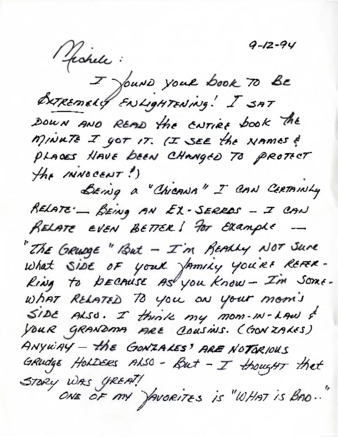 9-12-94
Michele:
I found your book TO BE
EXTREMELY ENLIGHTENING! I SAT
DOWN AND READ the ENTIRE book the
MINUTE I got IT. (I SEE the NAMES &
PLACES HAVE been CHANGED TO PROTECT
the INNOCENT!)
BEING A "CHICANA" I CAN CERTAINLY
RELATE - BEING AN EX-SERROS - I CAN
RELATE EVEN BETTER! For Example —
"The Grudge" But - I'm REALLY NOT SURE
what SIDE OF your family you're REFER-
RING to because AS you KNOW - I'm SOME-
WHAT RELATED TO you ON your mom's
SIDE ALSO. I think my mom-IN-LAW &
your GRANDMA ARE COUSINS. (GONZALES)
ANYWAY - the GONZALES' ARE NOTORIOUS
GRUDGE HOLDERS ALSO - But - I thought that
STORY WAS GREAT!
ONE OF MY FAVORITES IS "WHAT IS BAD.."